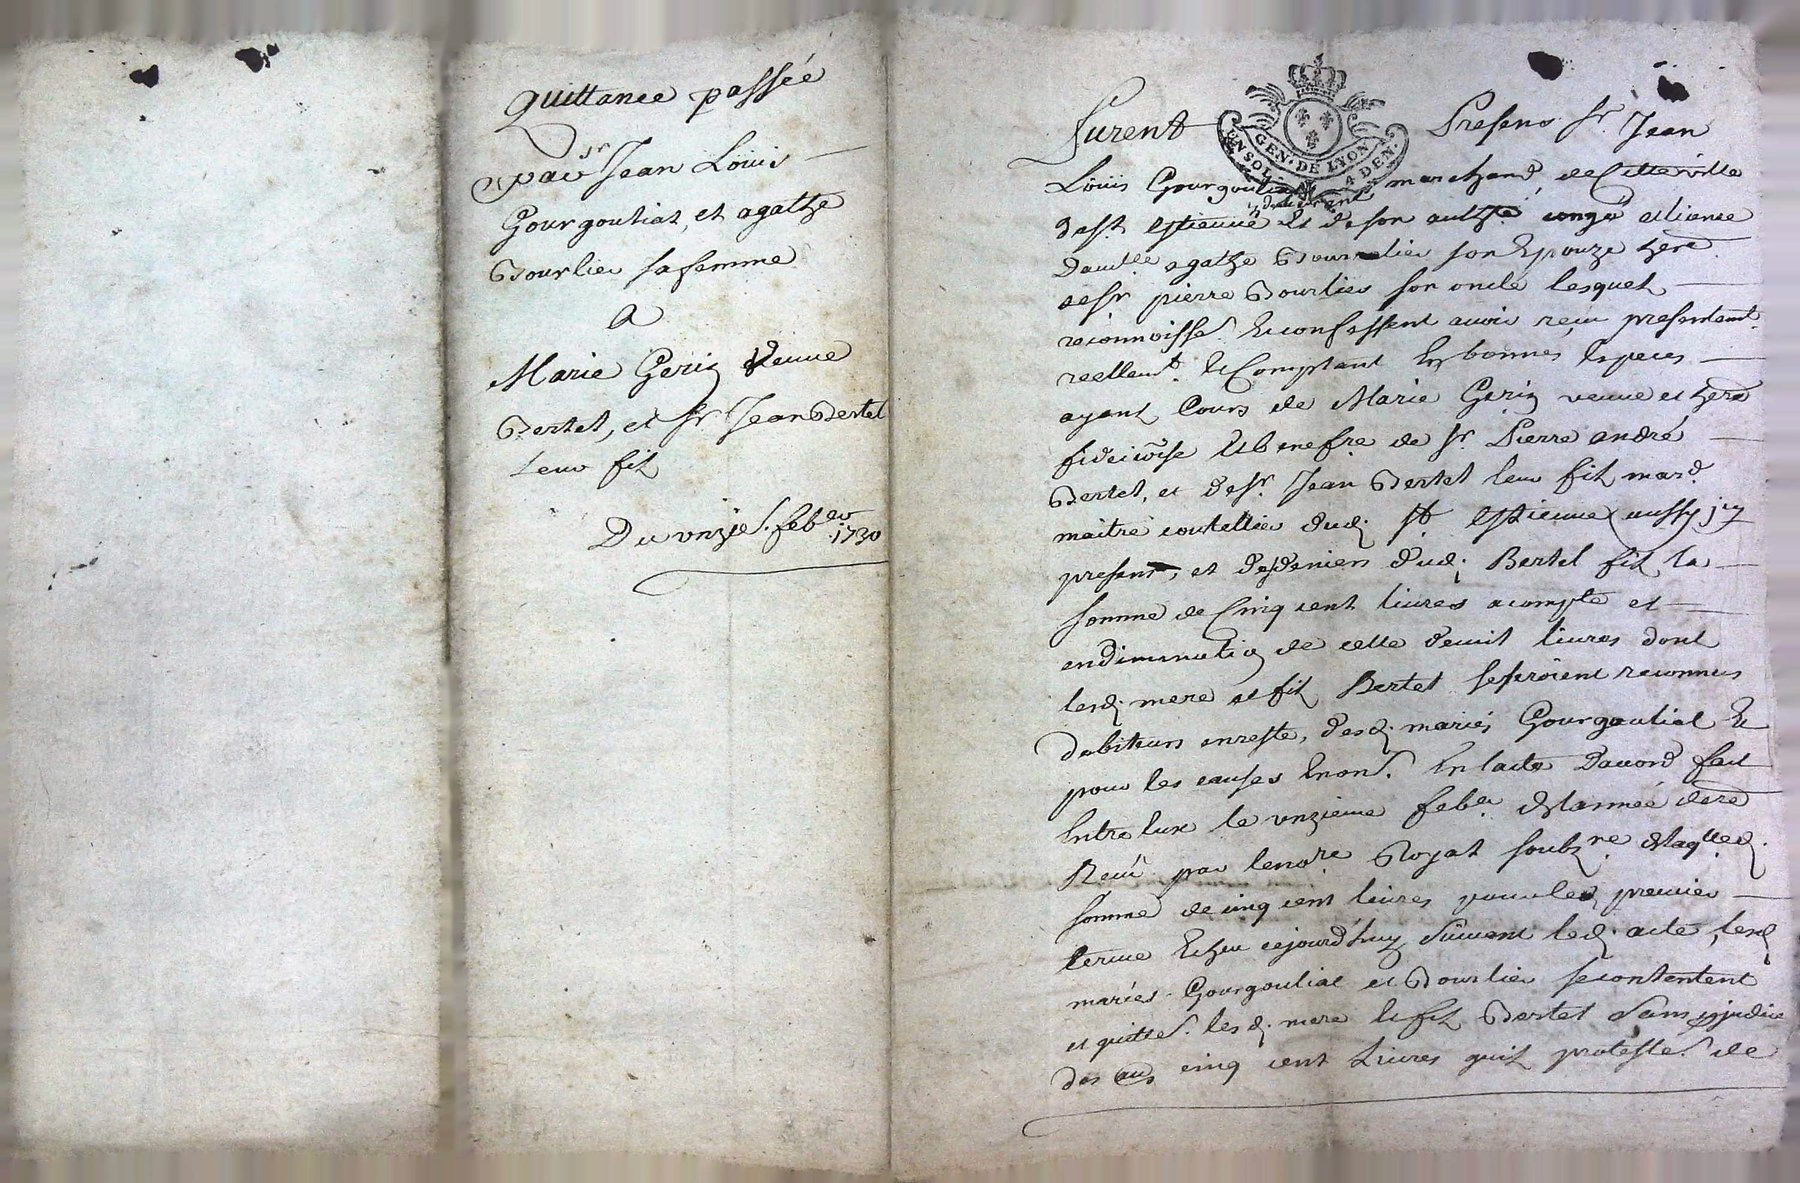 quittance passée
par Sr Jean Louis
Gourgouliat, et agathe
Bourlier sa femme
a
Marie Gerin veuve
Bertet, et Sr Jean Bertet
leur fil
Du vnzie. feber
1730
GEN. DE LYON
4 DEN.
furent Presens Sr. Jean
Louis Gourgouliat marchand de Cette ville
de St. estienne et de son authté congé et licence
agathe Bourlier son Epouze here
de Sr pierre Bourlier son oncle lesquels
reconnoisse. Et confessent avoir reçu presentemt.
reellemt. Et Comptant En bonnes Especes
ayant Cours de Marie Gerin veuve et here
de Sr Pierre andré
Bertet, et de Sr. Jean Bertet leur fil mard.
maitre coutellier dud. St estienne aussy jcy
presens, et des deniers dud. Bertet fil la
somme de Cinq cent livres acompte et
en diminution de celle livres dont
lesd. mere et fil Bertet se seroient reconnus
debiteurs en reste, desd. mariés Gourgouliat Et
pour les causes Enon. En lacte Daccord fait
Entre Eux le vnzieme feber
Reçu par le nore Royal soubzne. de laqlle
somme de cinq cent livres pour led. premier
terme Echeu cejourd'huy suivant led. acte, lesd
mariés Gourgouliat et Bourlier se contentent
et quitte. lesd. mere Et fil Bertet Sans prejudice
des au cinq cent Livres quil proteste. de